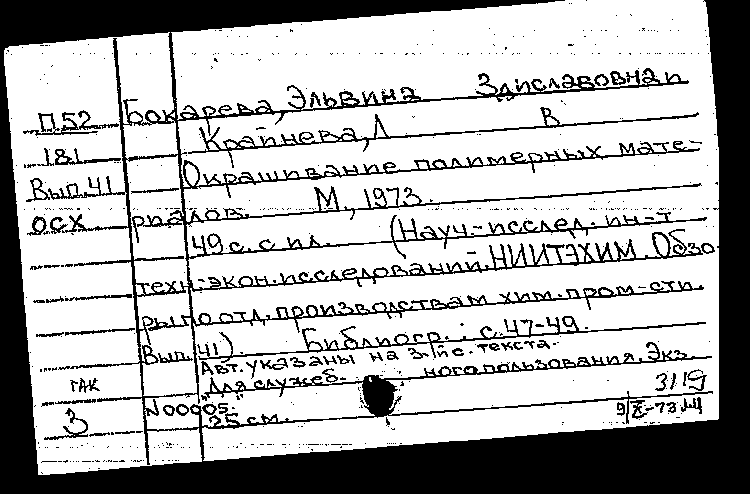 П52 Бокарева, Эльвина Здиславовна и
181 Крайнева, Л В
Вып.41 Окрашивание полимерных мате-
ОСХ риалов. М., 1973.
49 с. с ил. (Науч.-исслед. ин-т
техн.-экон. исследований. НИИТЭХИМ. Обзо-
ры по отд. производствам хим. пром-сти.
Вып. 41). Библиогр.: с. 47-49.
Авт. указаны на 3-й с. текста.
ГАК "Для служеб. ного пользования. Экз.
З N00005." 3119
25 см.